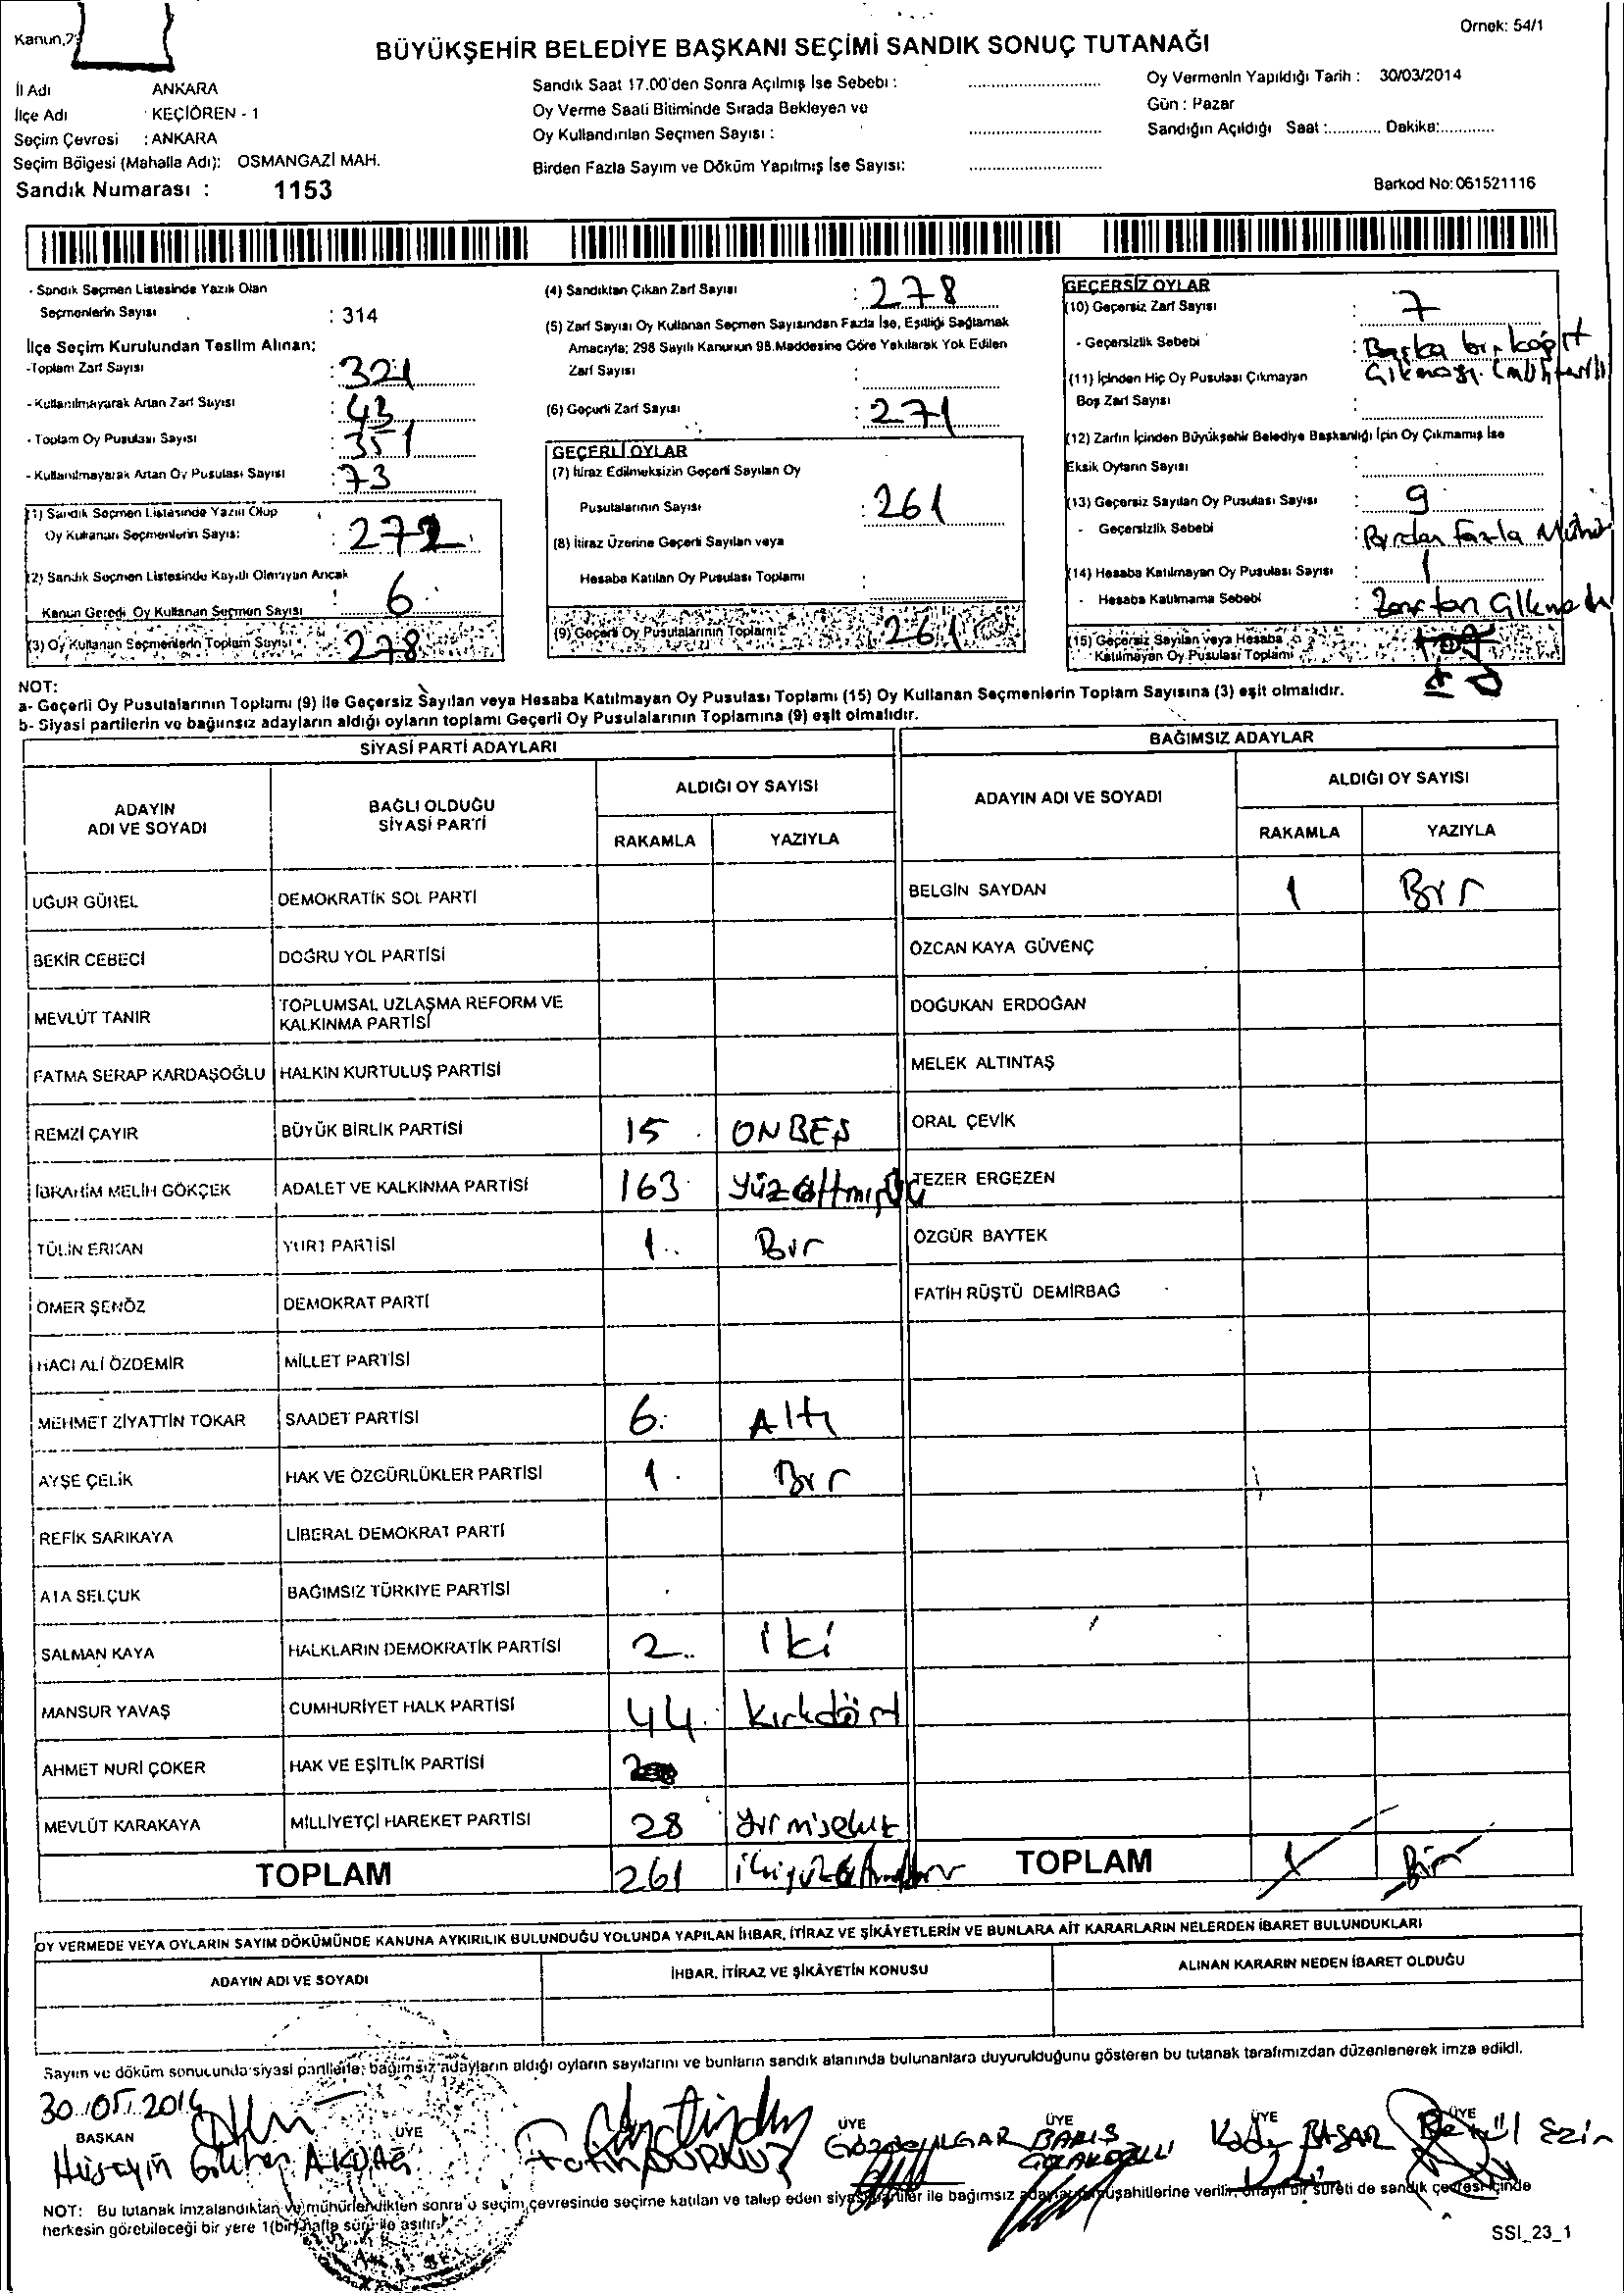 Örnek: 54/1
Kanun,7
BÜYÜKŞEHİR BELEDİYE BAŞKANI SEÇİMİ SANDIK SONUÇ TUTANAĞI
İl Adı ANKARA
İlçe Adı : KEÇİÖREN - 1
Seçim Çevresi : ANKARA
Seçim Bölgesi (Mahalle Adı): OSMANGAZİ MAH.
Sandık Numarası : 1153
Sandık Saat 17.00'den Sonra Açılmış İse Sebebi :
Oy Verme Saati Bitiminde Sırada Bekleyen ve
Oy Kullandırılan Seçmen Sayısı :
Birden Fazla Sayım ve Döküm Yapılmış İse Sayısı:
Oy Vermenin Yapıldığı Tarih : 30/03/2014
Gün : Pazar
Sandığın Açıldığı Saat :............ Dakika:............
Barkod No: 061521116
- Sandık Seçmen Listesinde Yazılı Olan
Seçmenlerin Sayısı : 314
İlçe Seçim Kurulundan Teslim Alınan:
-Toplam Zarf Sayısı : 321
- Kullanılmayarak Artan Zarf Sayısı : 43
- Toplam Oy Pusulası Sayısı : 351
- Kullanılmayarak Artan Oy Pusulası Sayısı : 73
(1) Sandık Seçmen Listesinde Yazılı Olup
Oy Kullanan Seçmenlerin Sayısı : 272
(2) Sandık Seçmen Listesinde Kayıtlı Olmayan Ancak
Kanun Gereği Oy Kullanan Seçmen Sayısı : 6
(3) Oy Kullanan Seçmenlerin Toplam Sayısı : 278
(4) Sandıktan Çıkan Zarf Sayısı : 278
(5) Zarf Sayısı Oy Kullanan Seçmen Sayısından Fazla İse, Eşitliği Sağlamak
Amacıyla; 298 Sayılı Kanunun 98.Maddesine Göre Yakılarak Yok Edilen
Zarf Sayısı :
(6) Geçerli Zarf Sayısı : 271
GEÇERLİ OYLAR
(7) İtiraz Edilmeksizin Geçerli Sayılan Oy
Pusulalarının Sayısı : 261
(8) İtiraz Üzerine Geçerli Sayılan veya
Hesaba Katılan Oy Pusulası Toplamı :
(9) Geçerli Oy Pusulalarının Toplamı : 261
GEÇERSİZ OYLAR
(10) Geçersiz Zarf Sayısı : 7
- Geçersizlik Sebebi : Başka bir kağıt
(11) İçinden Hiç Oy Pusulası Çıkmayan
Boş Zarf Sayısı :
(12) Zarfın İçinden Büyükşehir Belediye Başkanlığı İçin Oy Çıkmamış İse
Eksik Oyların Sayısı :
(13) Geçersiz Sayılan Oy Pusulası Sayısı : 9
- Geçersizlik Sebebi : Birden Fazla Mühür
(14) Hesaba Katılmayan Oy Pusulası Sayısı : 1
- Hesaba Katılmama Sebebi : Zarftan
(15) Geçersiz Sayılan veya Hesaba
Katılmayan Oy Pusulası Toplamı :
NOT:
a- Geçerli Oy Pusulalarının Toplamı (9) ile Geçersiz Sayılan veya Hesaba Katılmayan Oy Pusulası Toplamı (15) Oy Kullanan Seçmenlerin Toplam Sayısına (3) eşit olmalıdır.
b- Siyasi partilerin ve bağımsız adayların aldığı oyların toplamı Geçerli Oy Pusulalarının Toplamına (9) eşit olmalıdır.
SİYASİ PARTİ ADAYLARI BAĞIMSIZ ADAYLAR
ADAYIN ADI VE SOYADI
BAĞLI OLDUĞU SİYASİ PARTİ
ALDIĞI OY SAYISI
RAKAMLA YAZIYLA
ADAYIN ADI VE SOYADI
ALDIĞI OY SAYISI
RAKAMLA YAZIYLA
UĞUR GÜREL DEMOKRATİK SOL PARTİ BELGİN SAYDAN 1 Bir
BEKİR CEBECİ DOĞRU YOL PARTİSİ ÖZCAN KAYA GÜVENÇ
MEVLÜT TANIR TOPLUMSAL UZLAŞMA REFORM VE KALKINMA PARTİSİ DOĞUKAN ERDOĞAN
FATMA SERAP KARDAŞOĞLU HALKIN KURTULUŞ PARTİSİ MELEK ALTINTAŞ
REMZİ ÇAYIR BÜYÜK BİRLİK PARTİSİ 15 ONBEŞ ORAL ÇEVİK
İBRAHİM MELİH GÖKÇEK ADALET VE KALKINMA PARTİSİ 163 Yüzaltmışüç TEZER ERGEZEN
TÜLİN ERKAN YURT PARTİSİ 1 Bir ÖZGÜR BAYTEK
ÖMER ŞENÖZ DEMOKRAT PARTİ FATİH RÜŞTÜ DEMİRBAĞ
HACI ALİ ÖZDEMİR MİLLET PARTİSİ
MEHMET ZİYATTİN TOKAR SAADET PARTİSİ 6 Altı
AYŞE ÇELİK HAK VE ÖZGÜRLÜKLER PARTİSİ 1 Bir
REFİK SARIKAYA LİBERAL DEMOKRAT PARTİ
ATA SELÇUK BAĞIMSIZ TÜRKİYE PARTİSİ
SALMAN KAYA HALKLARIN DEMOKRATİK PARTİSİ 2 iki
MANSUR YAVAŞ CUMHURİYET HALK PARTİSİ 44 Kırkdört
AHMET NURİ ÇOKER HAK VE EŞİTLİK PARTİSİ
MEVLÜT KARAKAYA MİLLİYETÇİ HAREKET PARTİSİ 28 Yirmisekiz
TOPLAM 261 TOPLAM 1 Bir
OY VERMEDE VEYA OYLARIN SAYIM DÖKÜMÜNDE KANUNA AYKIRILIK BULUNDUĞU YOLUNDA YAPILAN İHBAR, İTİRAZ VE ŞİKÂYETLERİN VE BUNLARA AİT KARARLARIN NELERDEN İBARET BULUNDUKLARI
ADAYIN ADI VE SOYADI İHBAR, İTİRAZ VE ŞİKÂYETİN KONUSU ALINAN KARARIN NEDEN İBARET OLDUĞU
Sayım ve döküm sonucunda siyasi partilerle, bağımsız adayların aldığı oyların sayılarını ve bunların sandık alanında bulunanlara duyurulduğunu gösteren bu tutanak tarafımızdan düzenlenerek imza edildi.
BAŞKAN ÜYE ÜYE ÜYE ÜYE ÜYE
Hüseyin Fatih BARIŞ BAŞAR
NOT: Bu tutanak imzalandıktan ve mühürlendikten sonra o seçim çevresinde seçime katılan ve talep eden siyasi partiler ile bağımsız adayların müşahitlerine verilir, onaylı bir sureti de sandık çevresi içinde
herkesin görebileceği bir yere 1(bir) hafta süre ile asılır.
SSI_23_1